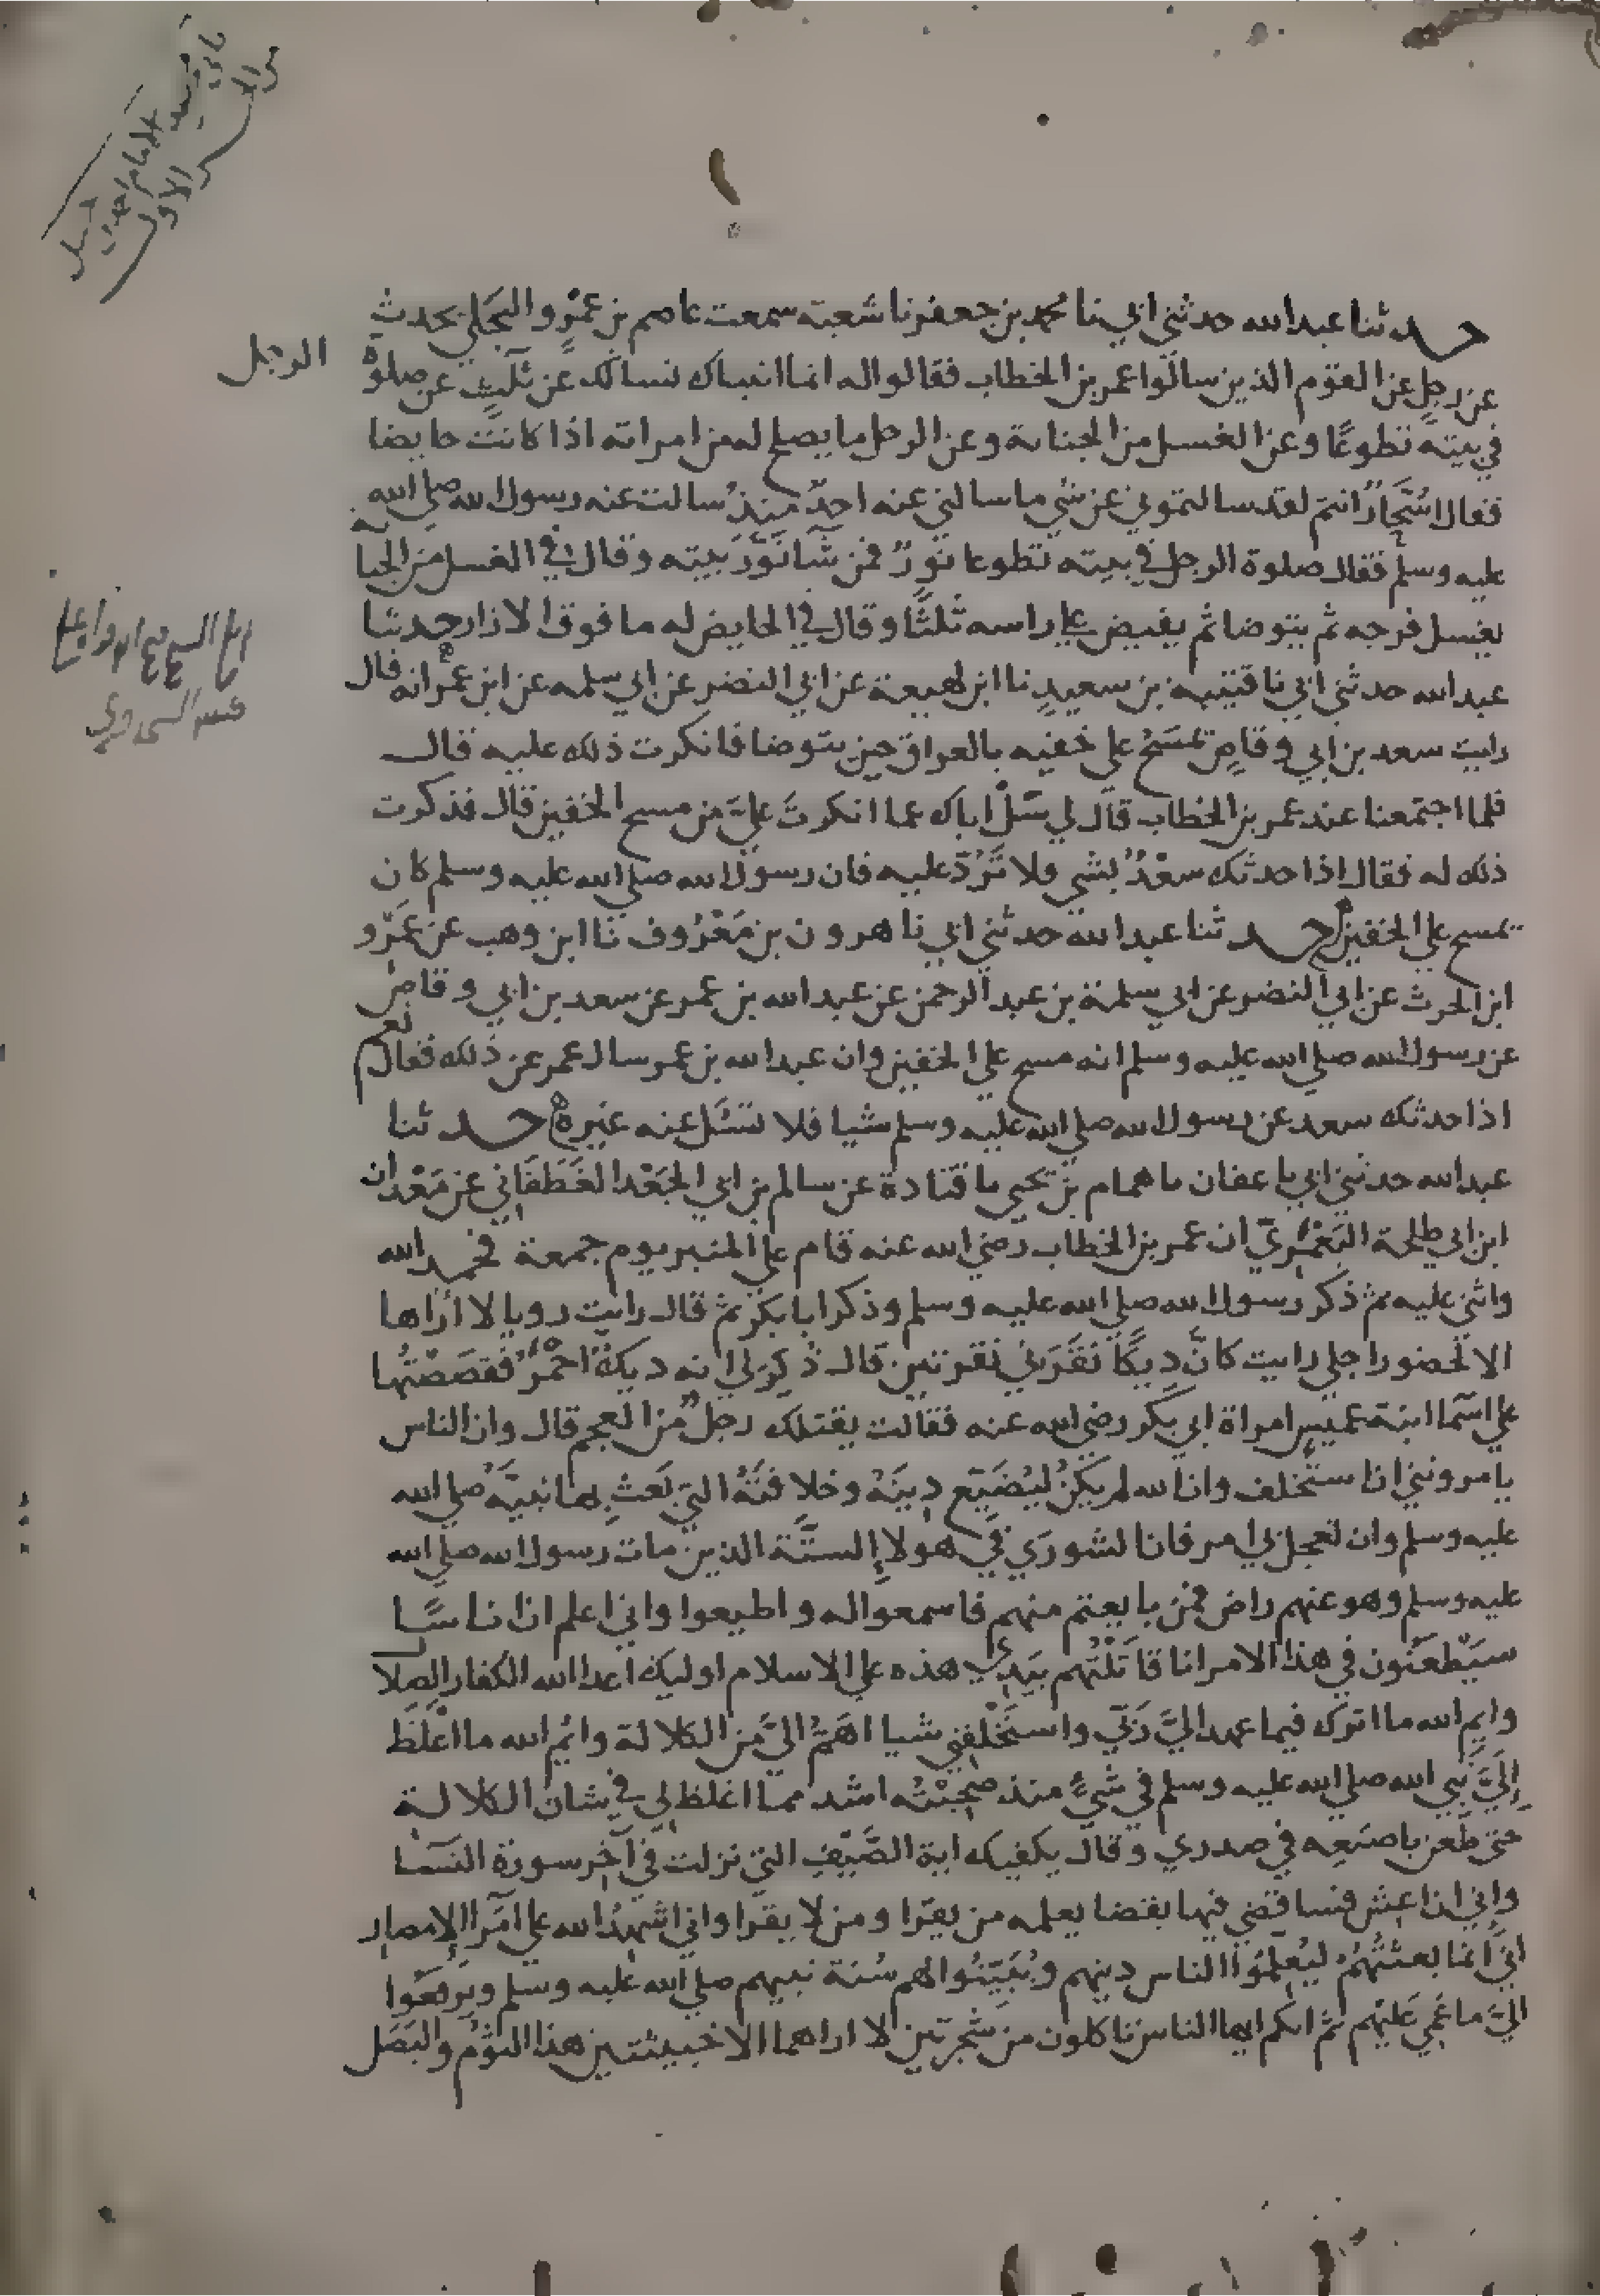 حدثنا عبد الله حدثني ابي نا محمد بن جعفر نا شعبة سمعت عاصم بن عمرو البجلي يحدث
عن رجل عن القوم الذين سالوا عمر بن الخطاب فقالوا له انما اتيناك نسالك عن ثلث عن صلوة الرجل
في بيته تطوعا وعن الغسل من الجنابة وعن الرجل ما يصلح له من امراته اذا كانت حايضا
فقال اسحار انتم لقد سالتموني عن شي ما سالني عنه احد منذ سالت عنه رسول الله صلى الله
عليه وسلم فقال صلوة الرجل في بيته تطوعا نور فمن شا نور بيته وقال في الغسل من الجنابة
يغسل فرجه ثم يتوضا ثم يفيض على راسه ثلثا وقال في الحايض له ما فوق الازار حدثنا
عبد الله حدثني ابي نا قتيبة بن سعيد نا ابن لهيعة عن ابي النضر عن ابي سلمه عن ابن عمر انه قال
رايت سعد بن ابي وقاص يمسح على خفيه بالعراق حين يتوضا فانكرت ذلك عليه قال
فلما اجتمعنا عند عمر بن الخطاب قال لي سل اباك عما انكرت علي من مسح الخفين قال فذكرت
ذلك له فقال اذا حدثك سعد بشي فلا ترد عليه فان رسول الله صلى الله عليه وسلم كان
يمسح على الخفين حدثنا عبد الله حدثني ابي نا هرون بن معروف نا ابن وهب عن عمرو
ابن الحرث عن ابي النضر عن ابي سلمة بن عبد الرحمن عن عبد الله بن عمر عن سعد بن ابي وقاص
عن رسول الله صلى الله عليه وسلم انه مسح على الخفين وان عبد الله بن عمر سال عمر عن ذلك فقال نعم
اذا حدثك سعد عن رسول الله صلى الله عليه وسلم شيا فلا تسئل عنه غيره حدثنا
عبد الله حدثني ابي نا عفان نا همام بن يحيى نا قتادة عن سالم بن ابي الجعد الغطفاني عن معدان
ابن ابي طلحة اليعمري ان عمر بن الخطاب رضي الله عنه قام على المنبر يوم جمعة فحمد الله
واثنى عليه ثم ذكر رسول الله صلى الله عليه وسلم وذكر ابا بكر ثم قال رايت رويا لا اراها
الا لحضور اجلي رايت كان ديكا نقرني نقرتين قال ذكر لي انه ديك احمر فقصصتها
على اسما ابنة عميس امراة ابي بكر رضي الله عنه فقالت يقتلك رجل من العجم قال وان الناس
يامرونني ان استخلف وان الله لم يكن ليضيع دينه وخلافته التي بعث بها نبيه صلى الله
عليه وسلم وان تعجل بي امر فان الشورى في هولاء الستة الذين مات رسول الله صلى الله
عليه وسلم وهو عنهم راض فمن بايعتم منهم فاسمعوا له واطيعوا واني اعلم ان ناسا
سيطعنون في هذا الامر انا قاتلتهم بيدي هذه على الاسلام اوليك اعدا الله الكفار الضلال
وايم الله ما اترك فيما عهد الي ربي واستخلفني شيا اهم الي من الكلالة وايم الله ما اغلظ
الي نبي الله صلى الله عليه وسلم في شيء منذ صحبته اشد مما اغلظ لي في شان الكلالة
حتى طعن باصبعه في صدري وقال يكفيك اية الصيف التي نزلت في اخر سورة النسا
واني ان اعش فساقضي فيها بقضا يعلمه من يقرا ومن لا يقرا واني اشهد الله على امرا الامصار
اني انما بعثتهم ليعلموا الناس دينهم ويبينوا لهم سنة نبيهم صلى الله عليه وسلم ويرفعوا
الي ما عمي عليهم ثم انكم ايها الناس تاكلون من شجرتين لا اراهما الا خبيثتين هذا الثوم والبصل